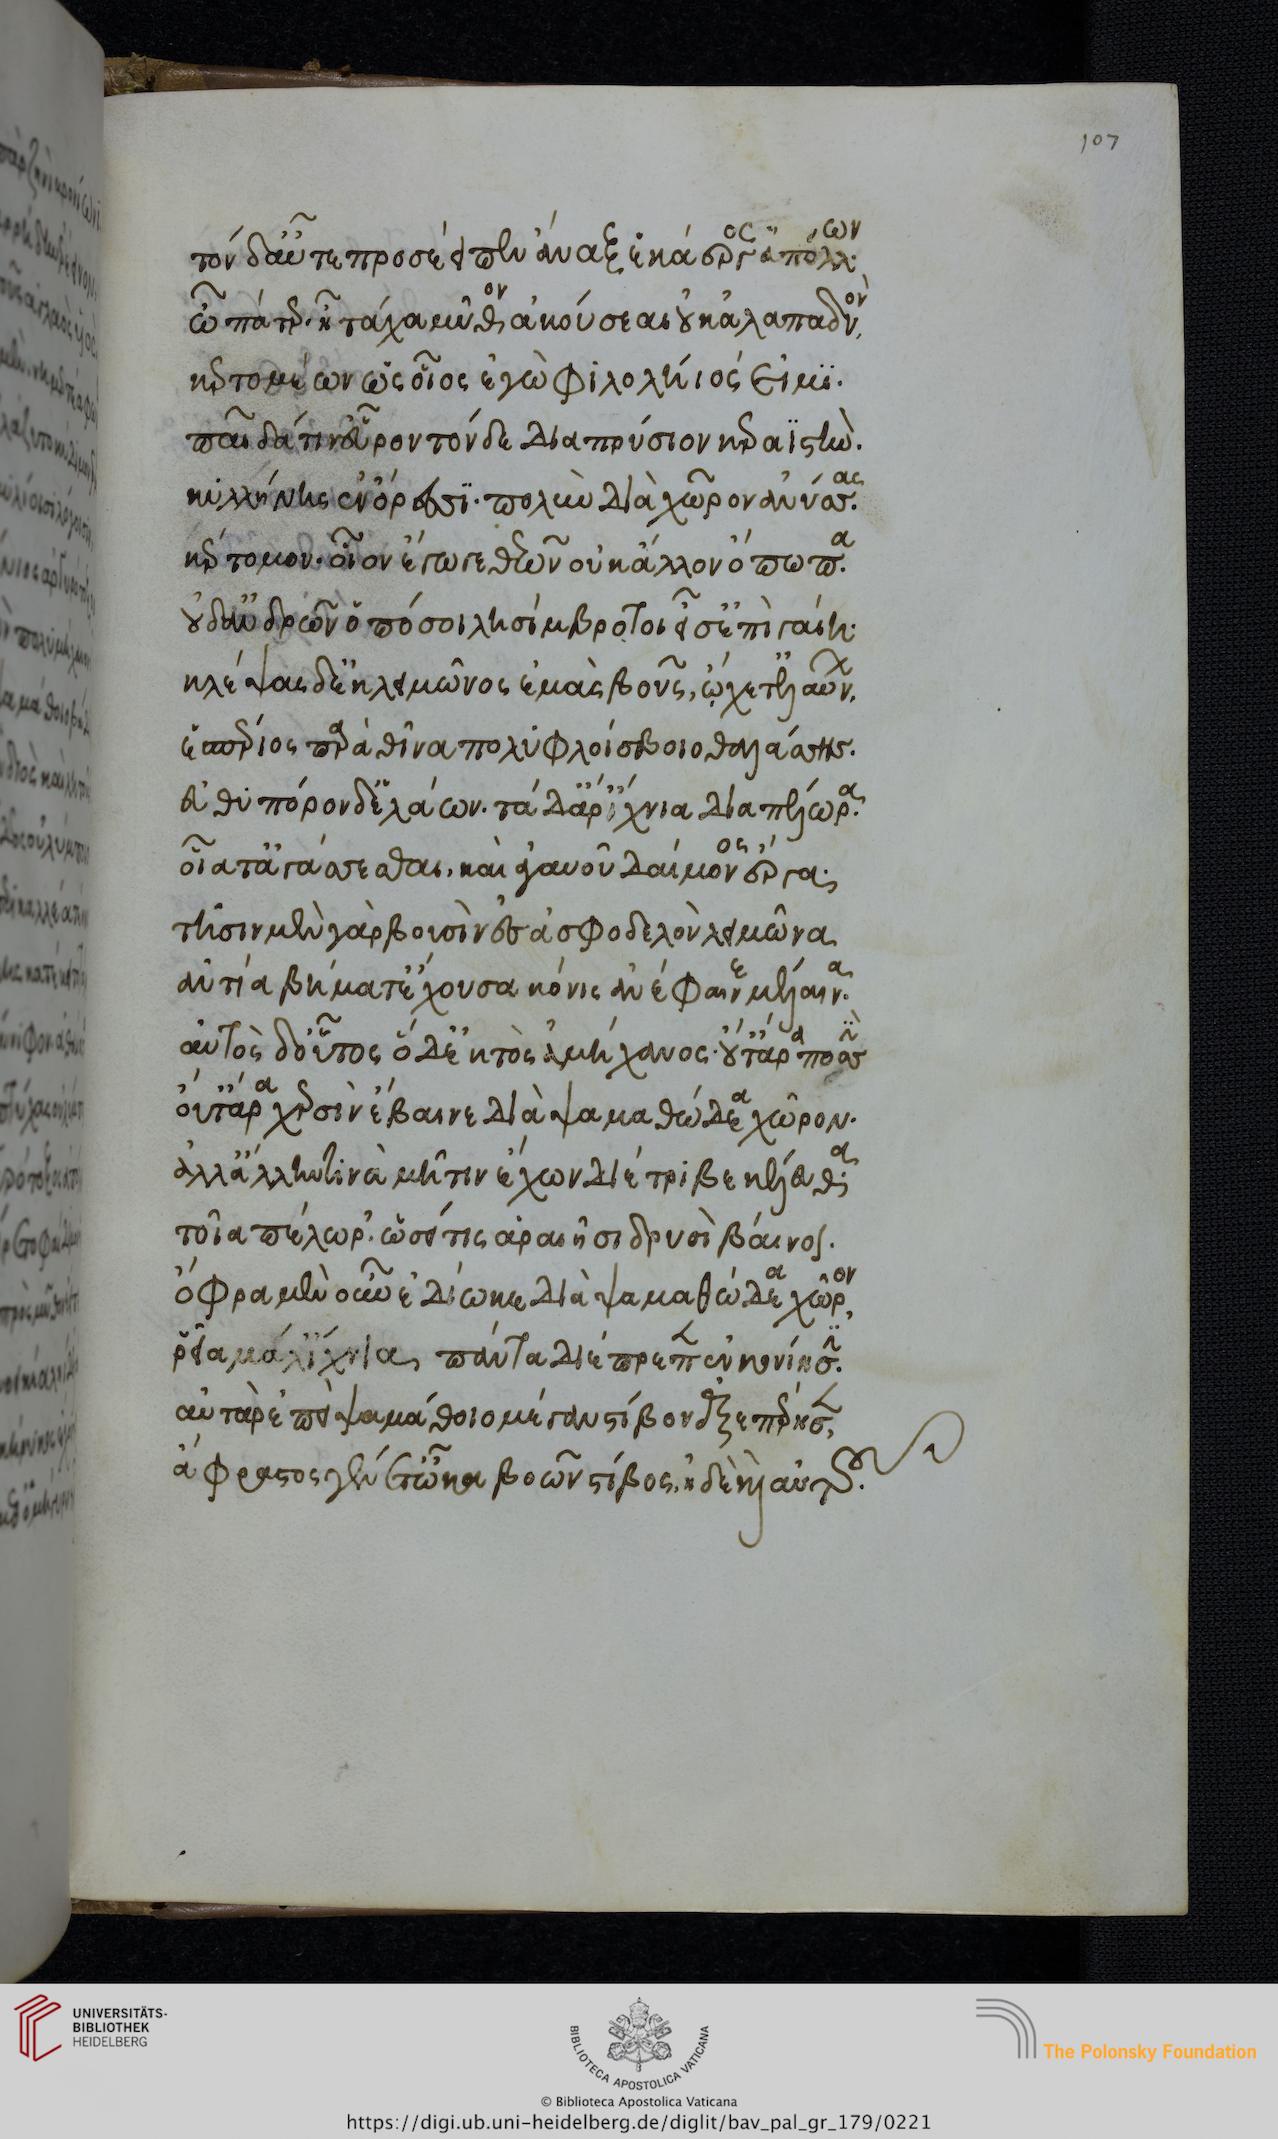 107
τὸν δ' αὖτε προσέειπεν ἄναξ ἑκάεργος ἀπόλλων·
ὦ πάτερ· ἦ τάχα μῦθον ἀκούσεαι οὐκ ἀλαπαδνόν,
κερτομέων ὡς οἶος ἐγὼ φιλολήιός εἰμι.
παῖδά τιν' εὗρον τόνδε διαπρύσιον κεραϊστὴν.
κυλλήνης ἐν ὄρεσσι· πολὺν διὰ χῶρον ἀνύσσας.
κέρτομον· οἷον ἔγωγε θεῶν οὐκ ἄλλον ὄπωπα.
οὐδ' ἀνδρῶν ὁπόσοι λησίμβροτοι εἰσ' ἐπὶ γαίῃ·
κλέψας δ' ἐκ λειμῶνος ἐμὰς βοῦς, ᾤχετ' ἐλαύνων,
ἑσπέριος παρὰ θῖνα πολυφλοίσβοιο θαλάσσης.
εὐθὺ πόρονδ' ἐλάων· τὰ δ' ἄρ' ἴχνια δῖα πέλωρα.
οἷά τ' ἀγάσσεσθαι, καὶ ἀγαυοῦ δαίμονος ἔργα·
τῇσιν μὲν γὰρ βουσὶν ἐς ἀσφοδελὸν λειμῶνα
ἀντία βήματ' ἔχουσα κόνις ἀνέφαινε μέλαινα.
αὐτὸς δ' οὗτος ὅδ' ἐκτὸς ἀμήχανος· οὔτ' ἄρα ποσσὶν
οὔτ' ἄρα χερσὶν ἔβαινε διὰ ψαμαθώδεα χῶρον.
ἀλλ' ἄλλην τινὰ μῆτιν ἔχων διέτριβε κέλευθα
τοῖα πέλωρ'. ὡσεί τις ἀραιῇσι δρυσὶ βαίνοι.
ὄφρα μὲν οὖν ἐδίωκε διὰ ψαμαθώδεα χῶρον,
ῥεῖα μάλ' ἴχνια πάντα διέπρεπεν ἐν κονίῃσιν.
αὐτὰρ ἐπεὶ ψαμάθοιο μέγαν στίβον ἐξεπέρησεν,
ἄφραστος γένετ' ὦκα βοῶν στίβος, ἠδὲ καὶ αὐτοῦ.
UNIVERSITÄTS-
BIBLIOTHEK
HEIDELBERG
BIBLIOTECA APOSTOLICA VATICANA
The Polonsky Foundation
© Biblioteca Apostolica Vaticana
https://digi.ub.uni-heidelberg.de/diglit/bav_pal_gr_179/0221